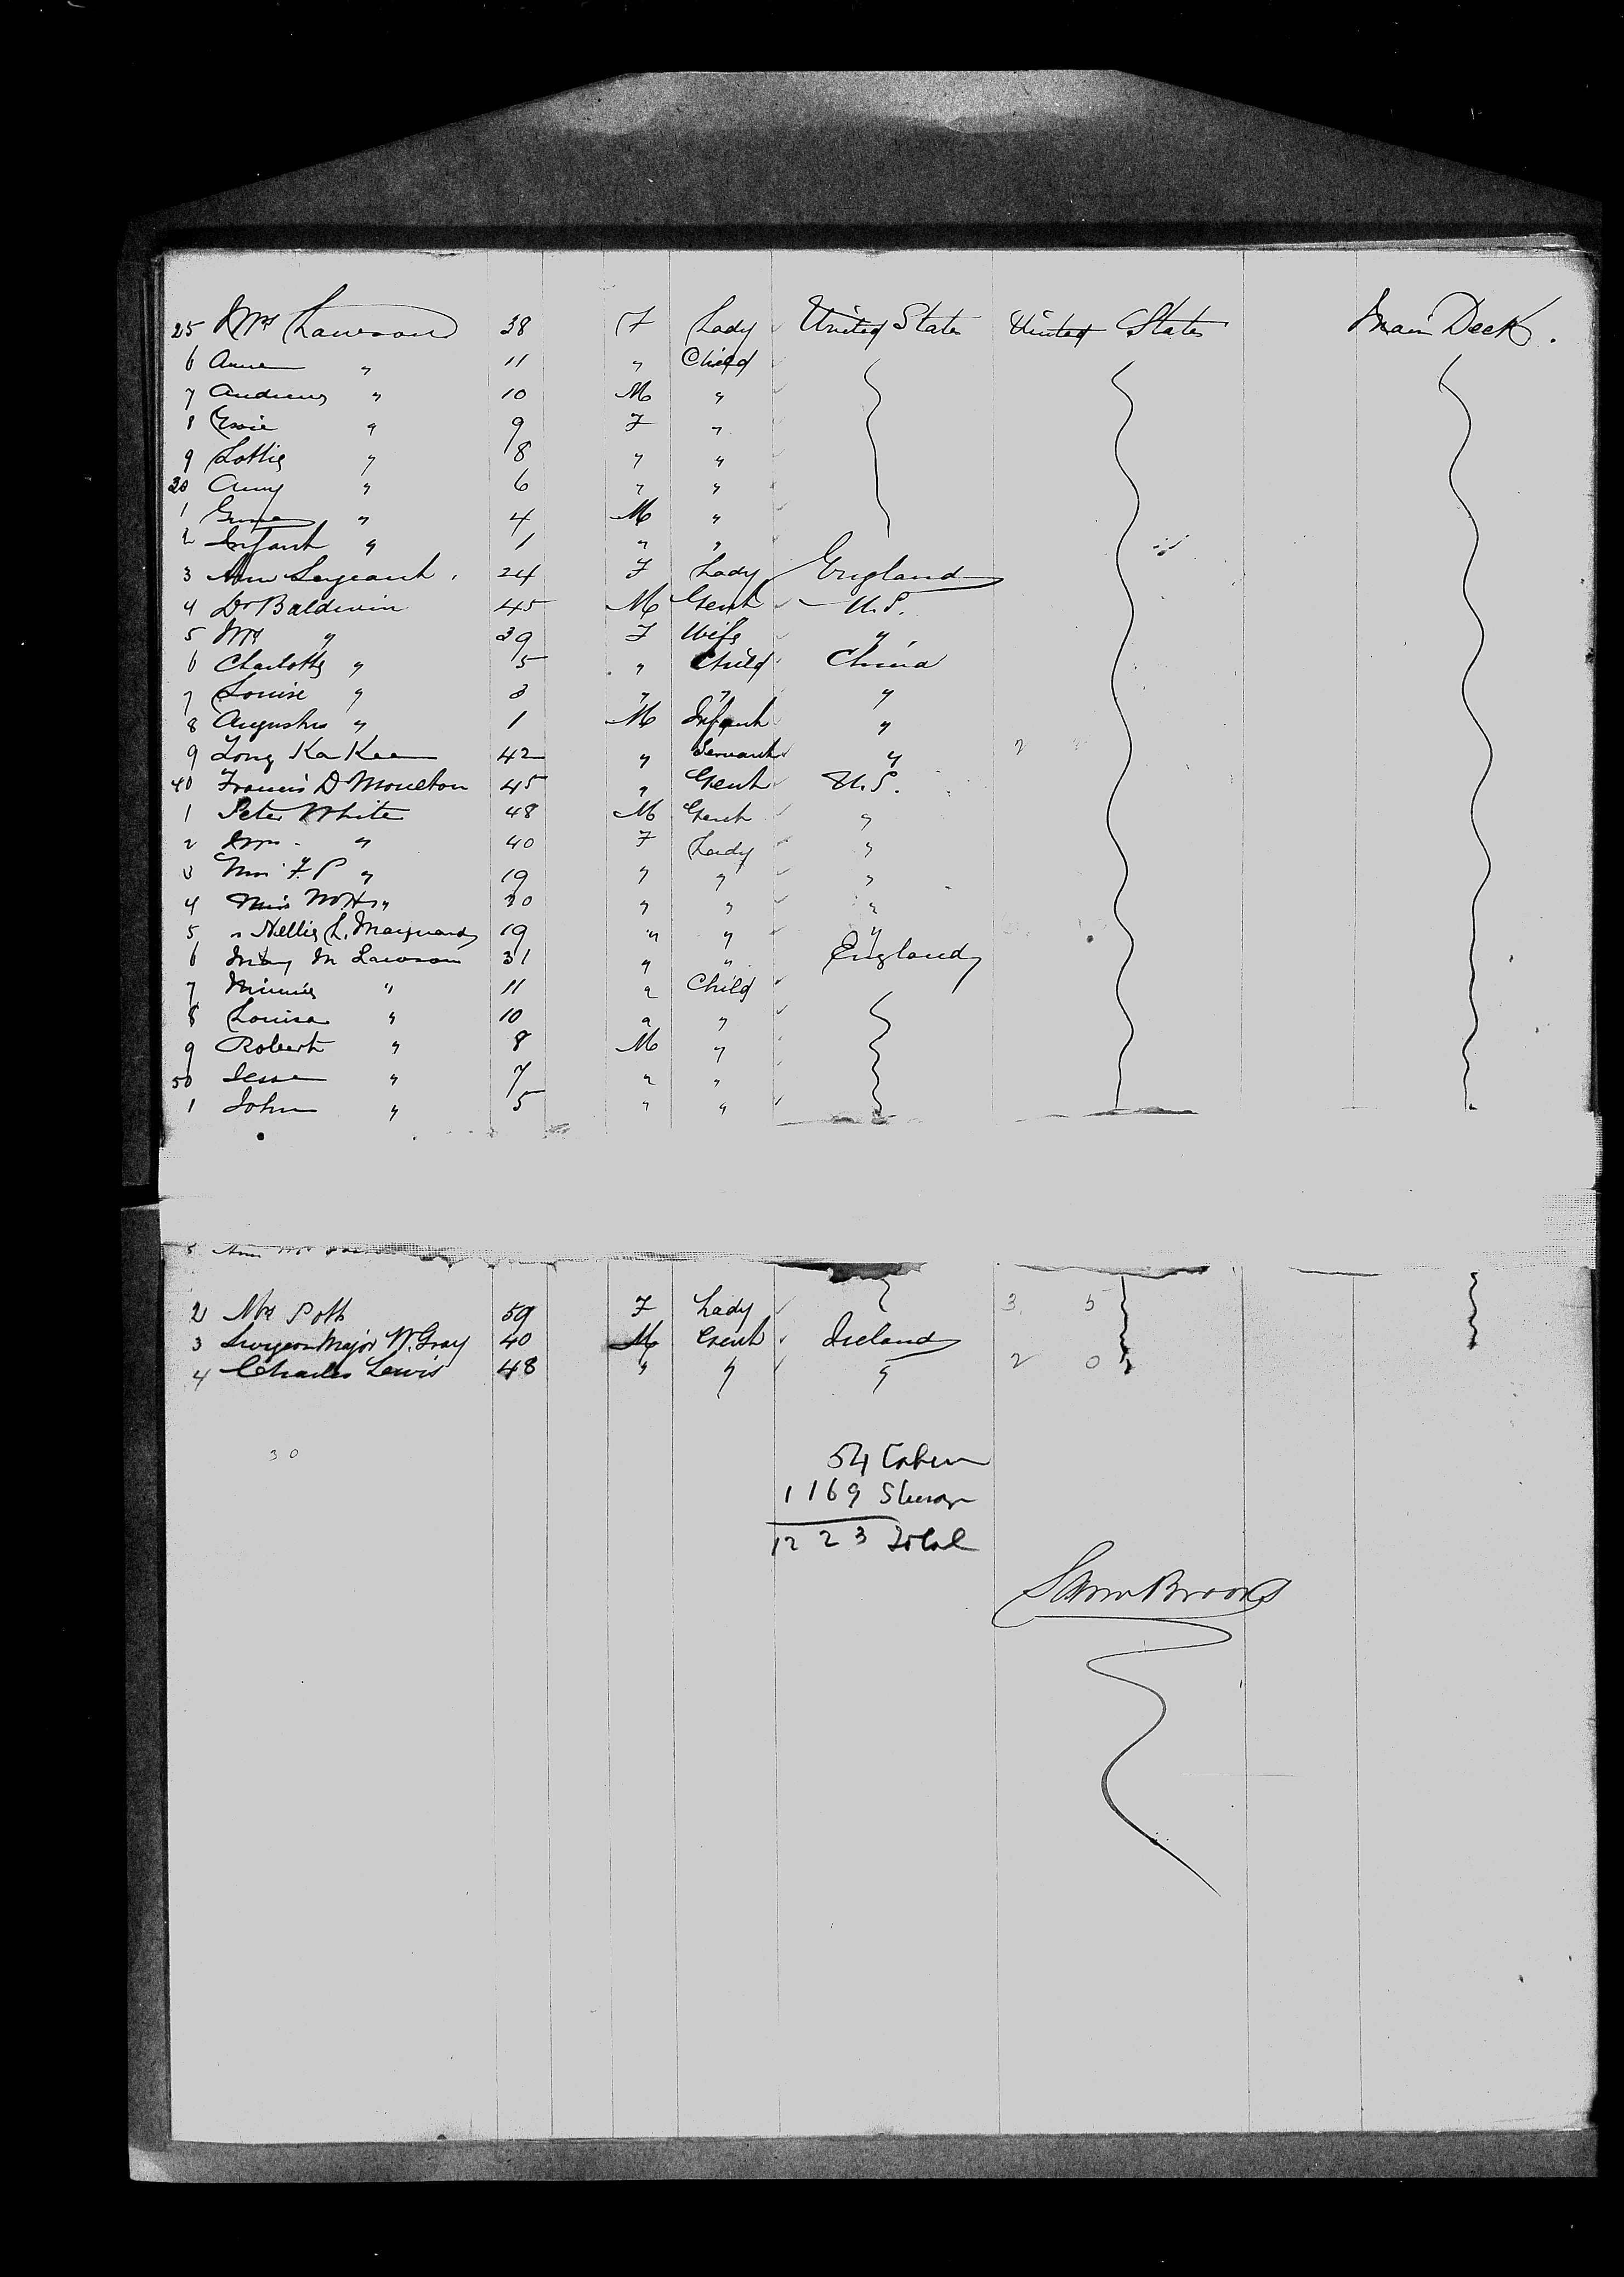 25 Mrs Lawson 38 F Lady United States United States Main Deck.
6 Anne " 11 " Child
7 Andrew " 10 M "
8 " 9 F "
9 Lottie " 8 " "
30 Amy " 6 " "
1 " 4 M "
2 Infant " 1 " "
3 Sergeant. 24 F Lady England
4 Dr Baldwin 45 M Gent U.S.
5 Mrs " 39 F Wife "
6 Charlotte " 5 " Child China
7 Louise " 3 " " "
8 Augustus " 1 M Infant "
9 Kee 42 " Servant " 2
40 Francis D Moulton 45 " Gent U.S.
1 Peter White 48 M Gent "
2 Mrs " 40 F Lady "
3 Miss F. P " 19 " " "
4 Miss " 20 " " "
5 " Nellie L. Maynard 19 " " "
6 Mary M Lawson 31 " " England
7 Minnie " 11 " Child
8 Louisa " 10 " "
9 Robert " 8 M "
50 " 7 " "
1 John " 5 " "
2 Mrs Pott 59 F Lady 3 5
3 Surgeon Major W. Gray 40 M Gent Ireland
4 Charles Lewis 48 " " " 2 0
30
54 Cabin
1169 Steerage
1223 Total
Brooks